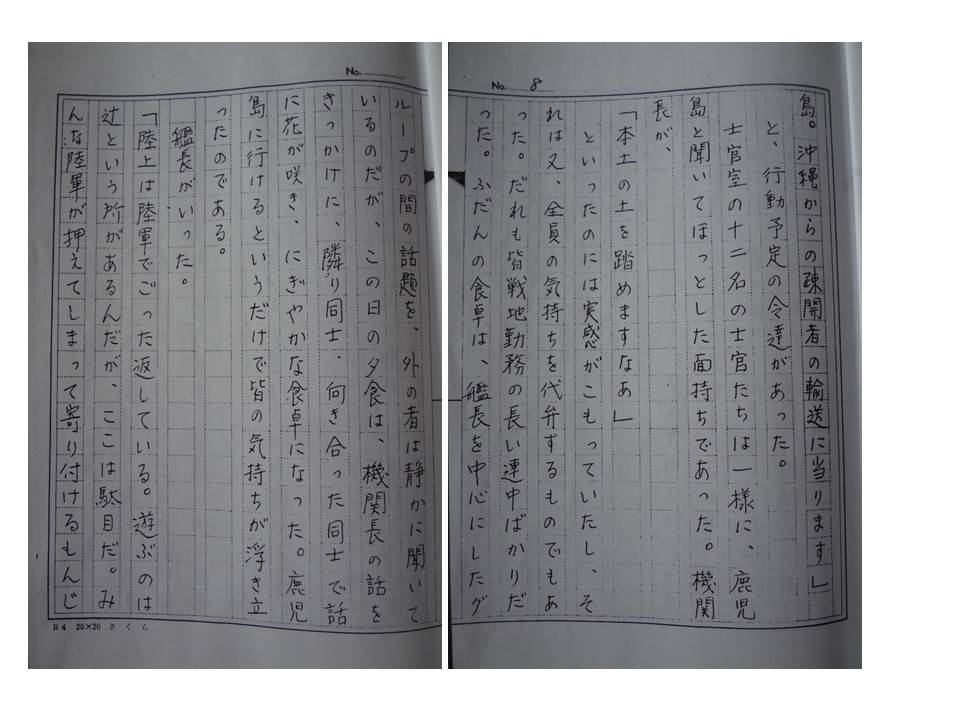 No. 8
島。沖縄からの疎開者の輸送に当ります」
と、行動予定の令達があった。
士官室の十二名の士官たちは一様に、鹿児
島と聞いてほっとした面持ちであった。機関
長が、
「本土の土を踏めますなあ」
といったのには実感がこもっていたし、そ
れは又、全員の気持ちを代弁するものでもあ
った。だれも皆戦地勤務の長い連中ばかりだ
った。ふだんの食卓は、艦長を中心にしたグ
No.
ループの間の話題を、外の者は静かに聞いて
いるのだが、この日の夕食は、機関長の話を
きっかけに、隣り同士、向き合った同士で話
に花が咲き、にぎやかな食卓になった。鹿児
島に行けるというだけで皆の気持ちが浮き立
ったのである。
艦長がいった。
「陸上は陸軍でごった返している。遊ぶのは
辻という所があるんだが、ここは駄目だ。み
んな陸軍が押えてしまって寄り付けるもんじ
B4 20×20 さくら